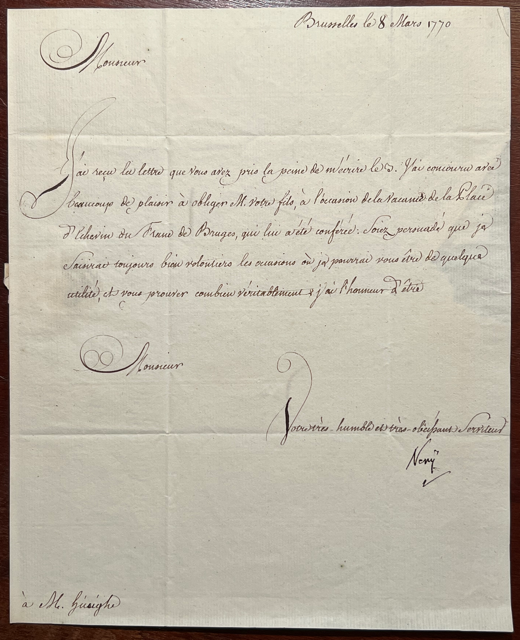 Brusselles le 8 Mars 1770
Monsieur
J'ai reçu la lettre que vous avez pris la peine de m'écrire le 3. J'ai concouru avec
beaucoup de plaisir à obliger M. votre fils, à l'occasion de la vacance de la Place
d'Echevin du Franc de Bruges, qui lui a été conférée. Soiez persuadé que je
saisirai toujours bien volontiers les occasions où je pourrai vous être de quelque
utilité, et vous prouver combien véritablement j'ai l'honneur d'être
Monsieur
Votre très-humble et très-obéissant Serviteur
Neny
à M.